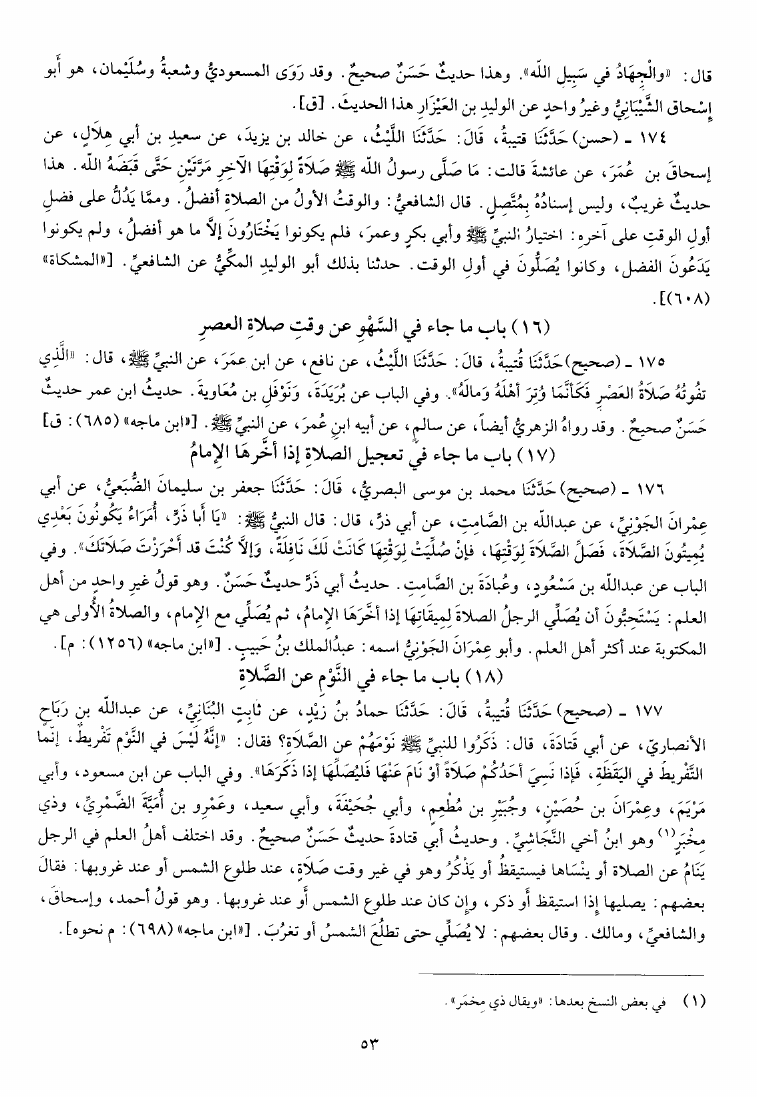 قال: «والْجِهَادُ في سَبِيلِ الله». وهذا حديثٌ حَسَنٌ صحيحٌ. وقد رَوَى المسعوديُّ وشعبةُ وسُلَيْمان، هو أَبو
إسْحاق الشَّيْبَانِيُّ وغيرُ واحدٍ عن الوليدِ بن العَيْزَارِ هذا الحديثَ. [ق].
١٧٤ ـ (حسن) حَدَّثَنَا قتيبةُ، قَالَ: حَدَّثَنَا اللَّيْثُ، عن خالد بن يزيدَ، عن سعيدِ بن أبي هِلَالٍ، عن
إسحاقَ بن عُمَرَ، عن عائشةَ قالت: مَا صَلَّى رسولُ الله ﷺ صَلَاةً لِوَقْتِهَا الآخِرِ مَرَّتَيْنِ حَتَّى قَبَضَهُ الله. هذا
حديثٌ غريبٌ، وليس إسنادُهُ بِمُتَّصِلٍ. قال الشافعيُّ: والوقتُ الأولُ من الصلاةِ أفضلُ. وممَّا يَدُلُّ على فضلِ
أولِ الوقتِ على آخرِهِ: اختيارُ النبيِّ ﷺ وأبي بكرٍ وعمرَ، فلم يكونوا يَخْتَارُونَ إلاَّ ما هو أفضلُ، ولم يكونوا
يَدَعُونَ الفضل، وكانوا يُصَلُّونَ في أولِ الوقت. حدثنا بذلك أبو الوليدِ المكيُّ عن الشافعيِّ. [«المشكاة»
(٦٠٨)].
(١٦) باب ما جاء في السَّهْوِ عن وقتِ صلاةِ العصرِ
١٧٥ ـ (صحيح) حَدَّثَنَا قُتيبةُ، قَالَ: حَدَّثَنَا اللَّيْثُ، عن نافع، عن ابن عمَرَ، عن النبيِّ ﷺ، قال: «الَّذِي
تفُوتُهُ صَلَاةُ العَصْرِ فَكَأَنَّمَا وُتِرَ أهْلَهُ وَمالَهُ». وفي الباب عن بُرَيَدَةَ، وَنَوْفَلِ بن مُعَاويةَ. حديثُ ابن عمر حديثٌ
حَسَنٌ صحيحٌ. وقد رواهُ الزهريُّ أيضاً، عن سالمٍ، عن أبيه ابنِ عُمرَ، عن النبيِّ ﷺ. [«ابن ماجه» (٦٨٥): ق]
(١٧) باب ما جاء في تعجيلِ الصلاةِ إذا أخَّرهَا الإمامُ
١٧٦ ـ (صحيح) حَدَّثَنَا محمد بن موسى البصريُّ، قَالَ: حَدَّثَنَا جعفر بن سليمانَ الضُّبَعيُّ، عن أبي
عِمْرانَ الجَوْنِيِّ، عن عبدالله بن الصَّامتِ، عن أبي ذرٍّ، قال: قال النبيُّ ﷺ: «يَا أبَا ذَرٍّ، أُمَرَاءُ يَكُونُونَ بَعْدِي
يُمِيتُونَ الصَّلَاةَ، فَصَلِّ الصَّلَاةَ لِوَقْتِهَا، فإنْ صُلِّيَتْ لِوَقْتِهَا كَانَتْ لَكَ نَافِلَةً، وَإلاَّ كُنْتَ قد أحْرَزْتَ صَلَاتَكَ». وفي
الباب عن عبدالله بن مَسْعُودٍ، وعُبَادَةَ بن الصَّامتِ. حديثُ أبي ذَرٍّ حديثٌ حَسَنٌ. وهو قولُ غيرِ واحدٍ من أهل
العلم: يَسْتَحِبُّونَ أن يُصَلِّي الرجلُ الصلاةَ لِمِيقَاتِهَا إذا أخَّرَهَا الإمامُ، ثم يُصَلِّي مع الإمام، والصلاةُ الأُولى هي
المكتوبة عند أكثر أهل العلم. وأبو عِمْرَانَ الجَوْنِيُّ اسمه: عبدُالملك بنُ حَبيبٍ. [«ابن ماجه» (١٢٥٦): م].
(١٨) باب ما جاء في النَّوْمِ عن الصَّلاةِ
١٧٧ ـ (صحيح) حَدَّثَنَا قُتيبةُ، قَالَ: حَدَّثَنَا حمادُ بنُ زيْدٍ، عن ثابتٍ البُنَانِيِّ، عن عبدالله بن رَبَاحٍ
الأنصاريّ، عن أبي قتادَةَ، قال: ذَكَرُوا للنبيِّ ﷺ نَوْمَهُمْ عن الصَّلَاةِ؟ فقال: «إنَّهُ لَيْسَ في النَّوْمِ تَفْرِيطٌ، إنَّما
التَّفْرِيطُ في اليَقَظَةِ، فَإذا نَسِيَ أحَدُكُمْ صَلَاةً أوْ نَامَ عَنْهَا فَليُصَلِّهَا إذَا ذَكَرَهَا». وفي الباب عن ابن مسعود، وأبي
مَرْيَمَ، وعِمْرَانَ بن حُصَيْنٍ، وجُبَيْرِ بن مُطْعِمٍ، وأبي جُحَيْفَةَ، وأبي سعيد، وعَمْرِو بن أُمَيَّةَ الضَّمْرِيِّ، وذي
مِخْبَرٍ(١) وهو ابنُ أخي النَّجَاشِيِّ. وحديثُ أبي قتادةَ حديثٌ حَسَنٌ صحيحٌ. وقد اختلف أهلُ العلم في الرجل
يَنَامُ عن الصلاة أو ينْسَاها فيستيقظُ أو يَذْكُرُ وهو في غير وقت صَلَاةٍ، عند طلوع الشمس أو عند غروبها: فقالَ
بعضهم: يصليها إذا استيقظ أو ذكر، وإن كان عند طلوع الشمس أو عند غروبها. وهو قولُ أحمد، وإسحاقَ،
والشافعيِّ، ومالك. وقال بعضهم: لا يُصَلِّي حتى تطلُعَ الشمسُ أو تغرُبَ. [«ابن ماجه» (٦٩٨): م نحوه].
(١) في بعض النسخ بعدها: «ويقال ذي مِخمَر».
٥٣